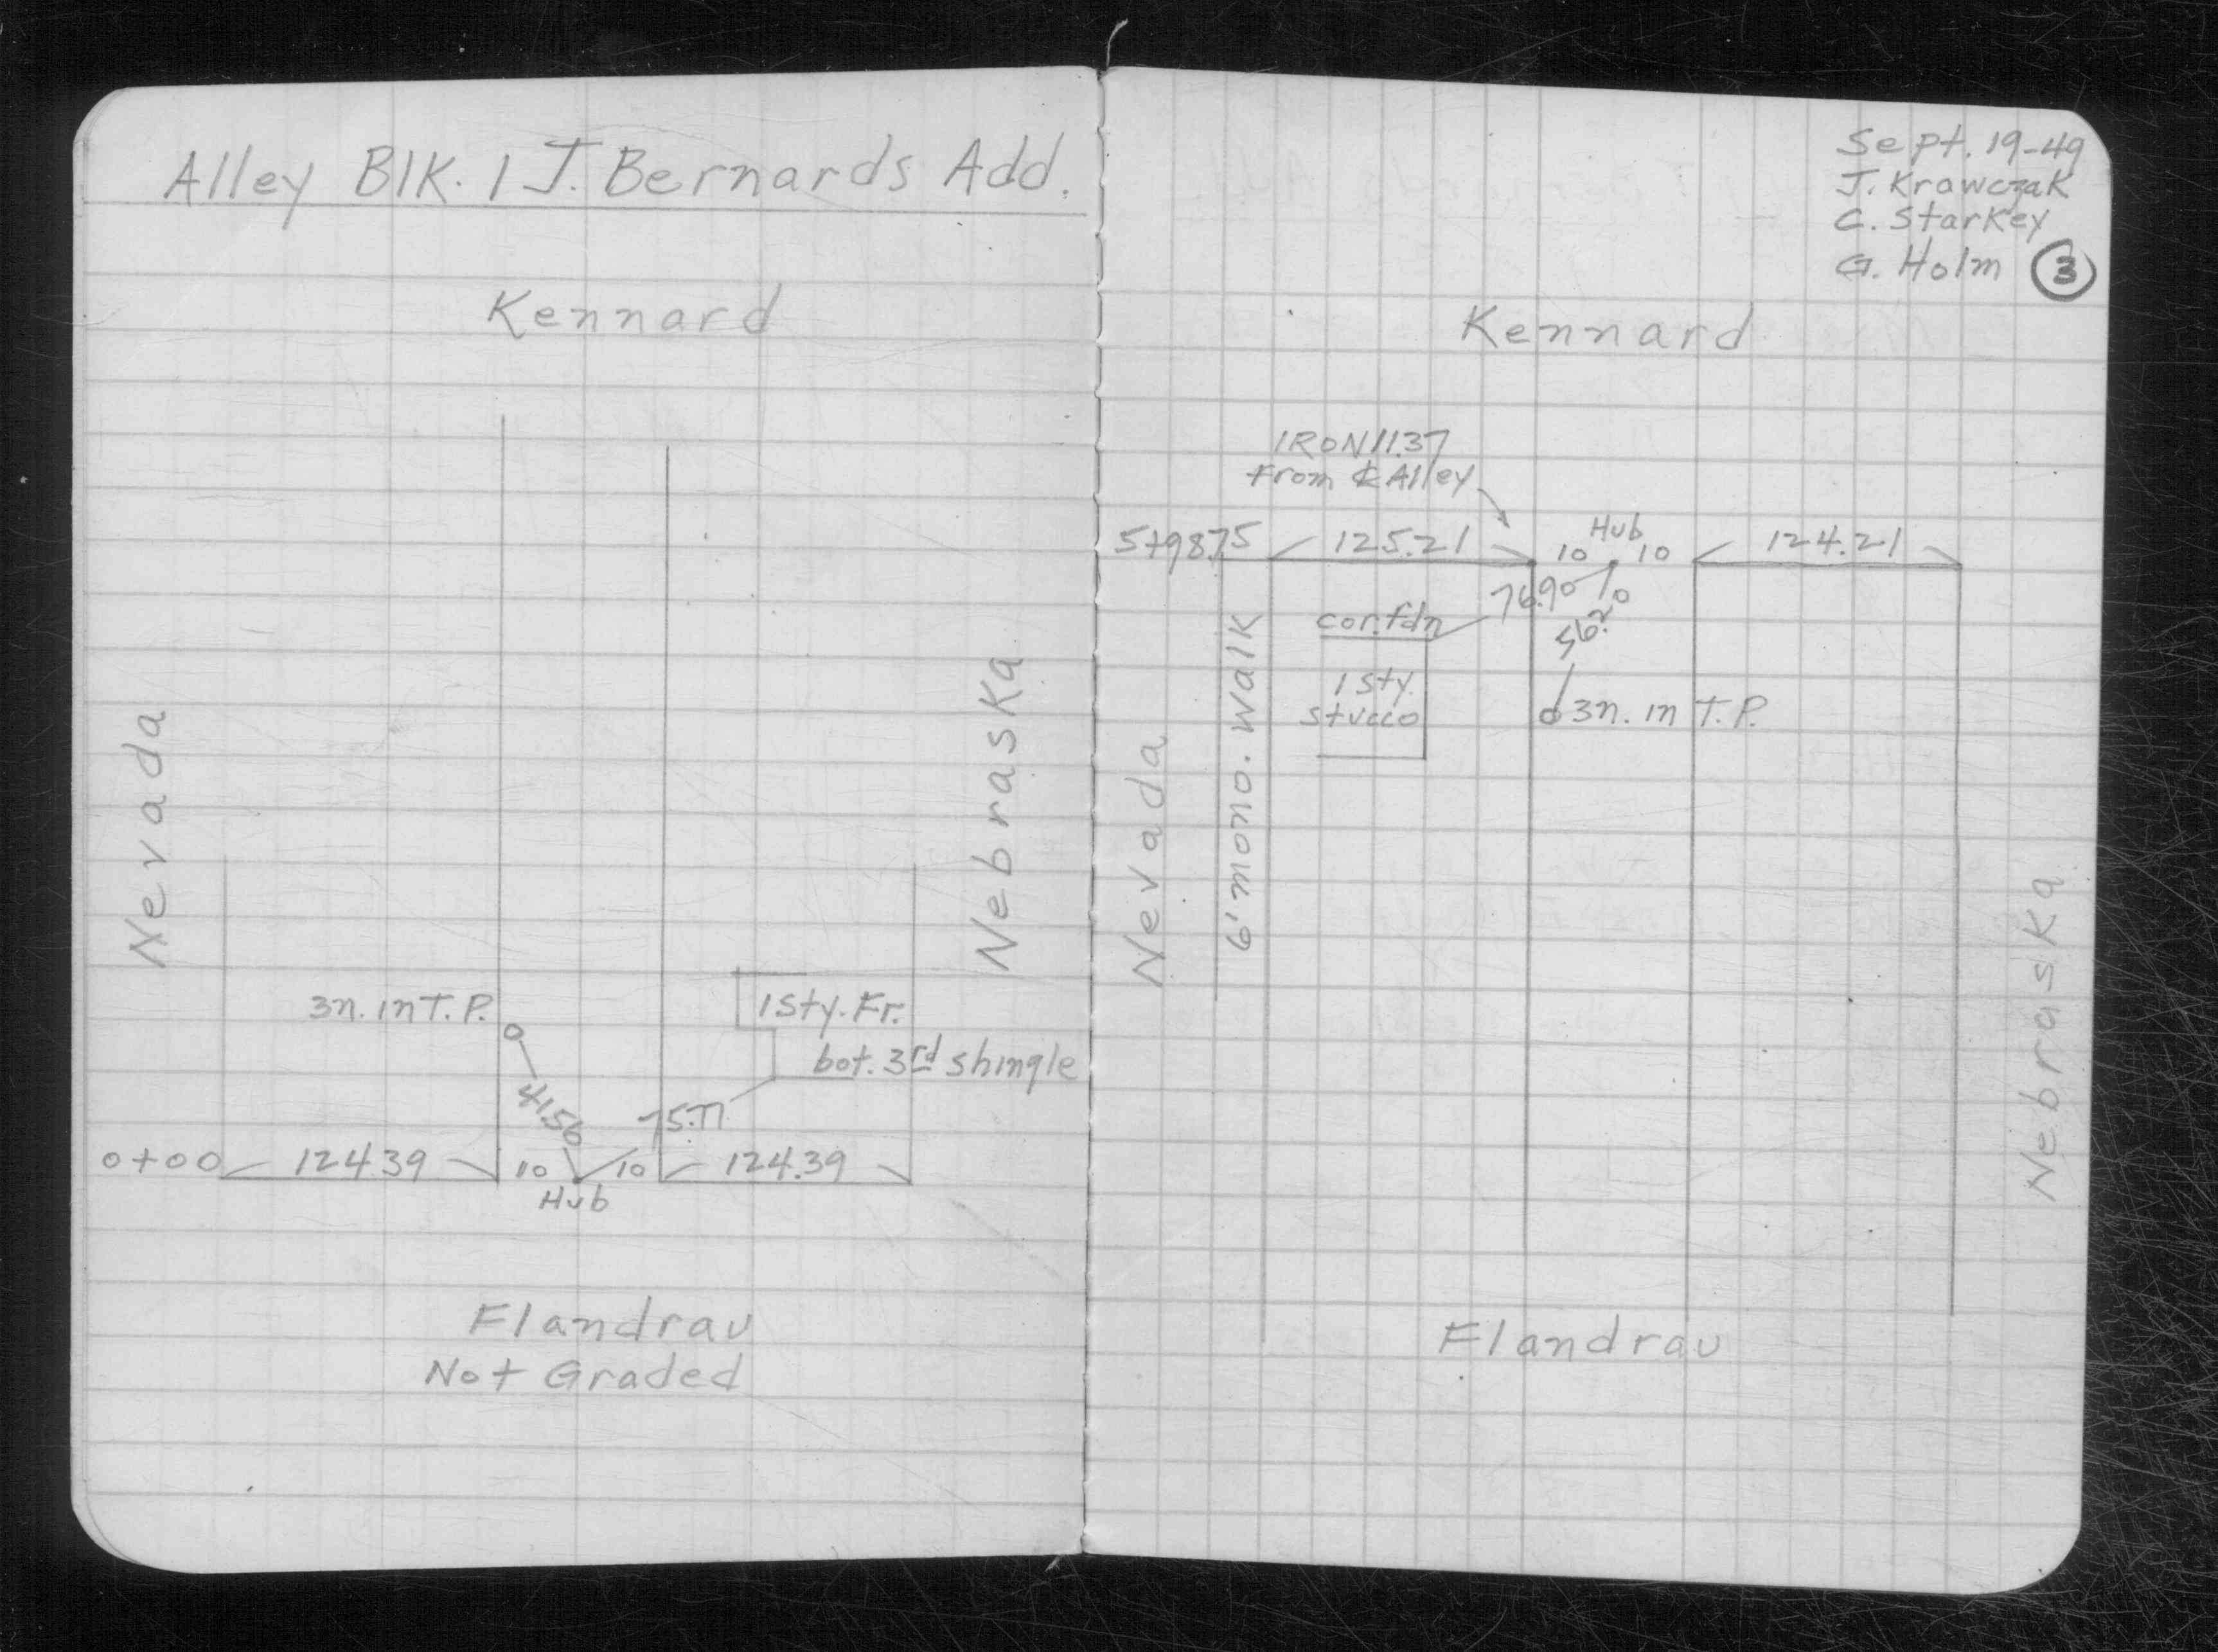 Alley Blk. 1 J. Bernards Add.
Kennard
Nevada
Nebraska
3n. in T.P.
1 Sty. Fr.
bot. 3rd shingle
41.56
75.77
0+00
124.39
10
10
124.39
Hub
Flandrau
Not Graded
Sept. 19-49
J. Krawczak
C. Starkey
G. Holm
3
Kennard
IRON 11.37
From ℄ Alley
5+98.75
125.21
Hub
10
10
124.21
76.90
cor. fdn
1 sty.
stucco
3n. in T.P.
Nevada
6' mono. Walk
Nebraska
Flandrau